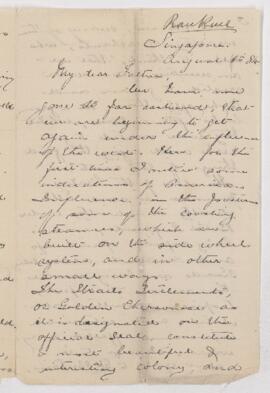 Singapore
August
My dear Father,
We have now
gone so far eastward, that
we are beginning to get
again under the influence
of the west. Here for the
first time I notice some
indications of American
Influence, in the
of some of the coasting
steamers, which are
built on the side wheel
system, and in other
small ways.
The Straits Settlements,
or Golden Chersonese as
it is designated on the
official Seal, constitute
a most beautiful &
interesting colony, and